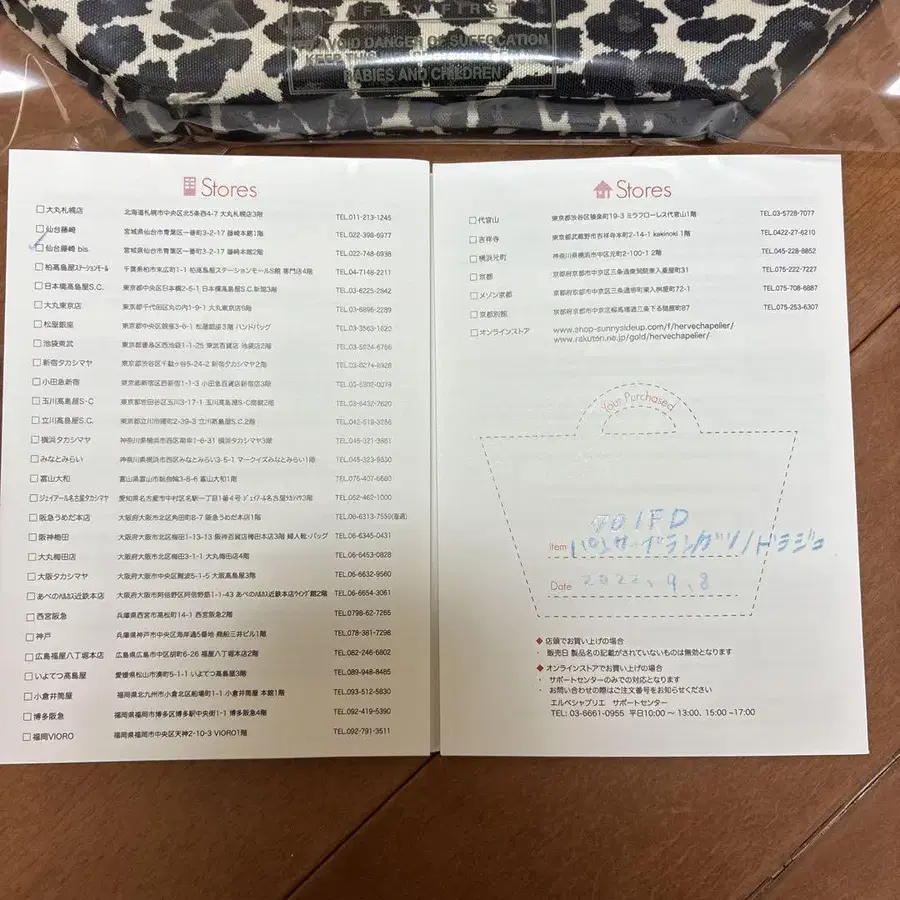 SAFETY FIRST
AVOID DANGER OF SUFFOCATION
KEEP THIS
BABIES AND CHILDREN
Stores
大丸札幌店 北海道札幌市中央区北5条西4-7 大丸札幌店3階 TEL.011-213-1245
仙台藤崎 宮城県仙台市青葉区一番町3-2-17 藤崎本館1階 TEL.022-398-6977
仙台藤崎 bis. 宮城県仙台市青葉区一番町3-2-17 藤崎本館2階 TEL.022-748-6938
柏高島屋ステーションモール 千葉県柏市末広町1-1 柏高島屋ステーションモールS館 専門店4階 TEL.04-7148-2211
日本橋高島屋S.C. 東京都中央区日本橋2-5-1 日本橋高島屋S.C.新館3階 TEL.03-6225-2842
大丸東京店 東京都千代田区丸の内1-9-1 大丸東京店5階 TEL.03-6896-2289
松屋銀座 東京都中央区銀座3-6-1 松屋銀座3階 ハンドバッグ TEL.03-3563-1620
池袋東武 東京都豊島区西池袋1-1-25 東武百貨店 池袋店2階
新宿タカシマヤ 東京都渋谷区千駄ヶ谷5-24-2 新宿タカシマヤ2階
小田急新宿 東京都新宿区西新宿1-1-3 小田急百貨店新宿店3階
玉川高島屋S・C 東京都世田谷区玉川3-17-1 玉川高島屋S・C南館2階 TEL.03-6432-7620
立川高島屋S.C. 東京都立川市曙町2-39-3 立川高島屋S.C.2階 TEL.042-519-3286
横浜タカシマヤ 神奈川県横浜市西区南幸1-6-31 横浜タカシマヤ3階 TEL.045-321-3861
みなとみらい 神奈川県横浜市西区みなとみらい3-5-1 マークイズみなとみらい1階 TEL.045-323-9530
富山大和 富山県富山市総曲輪3-8-6 富山大和1階 TEL.076-407-6680
ジェイアール名古屋タカシマヤ 愛知県名古屋市中村区名駅一丁目1番4号 ジェイアール名古屋タカシマヤ3階 TEL.052-462-1000
阪急うめだ本店 大阪府大阪市北区角田町8-7 阪急うめだ本店1階 TEL.06-6313-7550(直通)
阪神梅田 大阪府大阪市北区梅田1-13-13 阪神百貨店梅田本店3階 婦人靴・バッグ TEL.06-6345-0431
大丸梅田店 大阪府大阪市北区梅田3-1-1 大丸梅田店4階 TEL.06-6453-0828
大阪タカシマヤ 大阪府大阪市中央区難波5-1-5 大阪高島屋3階 TEL.06-6632-9560
あべのハルカス近鉄本店 大阪府大阪市阿倍野区阿倍野筋1-1-43 あべのハルカス近鉄本店ウイング館2階 TEL.06-6654-3061
西宮阪急 兵庫県西宮市高松町14-1 西宮阪急2階 TEL.0798-62-7265
神戸 兵庫県神戸市中央区海岸通5番地 商船三井ビル1階 TEL.078-381-7298
広島福屋八丁堀本店 広島県広島市中区胡町6-26 福屋八丁堀本店2階 TEL.082-246-6802
いよてつ高島屋 愛媛県松山市湊町5-1-1 いよてつ高島屋3階 TEL.089-948-8485
小倉井筒屋 福岡県北九州市小倉北区船場町1-1 小倉井筒屋 本館1階 TEL.093-512-5830
博多阪急 福岡県福岡市博多区博多駅中央街1-1 博多阪急4階 TEL.092-419-5390
福岡VIORO 福岡県福岡市中央区天神2-10-3 VIORO1階 TEL.092-791-3511
Stores
代官山 東京都渋谷区猿楽町19-3 ミラフローレス代官山1階 TEL.03-5728-7077
吉祥寺 東京都武蔵野市吉祥寺本町2-14-1 kakinoki 1階 TEL.0422-27-6210
横浜元町 神奈川県横浜市中区元町2-100-1 2階 TEL.045-228-8852
京都 京都府京都市中京区三条通東洞院東入菱屋町31 TEL.075-222-7227
メゾン京都 京都府京都市中京区三条通堺町東入桝屋町72-1 TEL.075-708-6887
京都別館 京都府京都市中京区柳馬場通三条下る槌屋町87 TEL.075-253-6307
オンラインストア www.shop-sunnysideup.com/f/hervechapelier/
www.rakuten.ne.jp/gold/hervechapelier/
Your Purchased
701FD
Item パンサードラングリ/ドラジェ
Date 2022.9.8
◆ 店頭でお買い上げの場合
・ 販売日 製品名の記載がされていないものは無効となります
◆ オンラインストアでお買い上げの場合
・ サポートセンターのみでの対応となります
・ お問い合わせの際はご注文番号をお知らせください
エルベシャプリエ サポートセンター
TEL: 03-6661-0955 平日10:00 〜 13:00、15:00 〜17:00